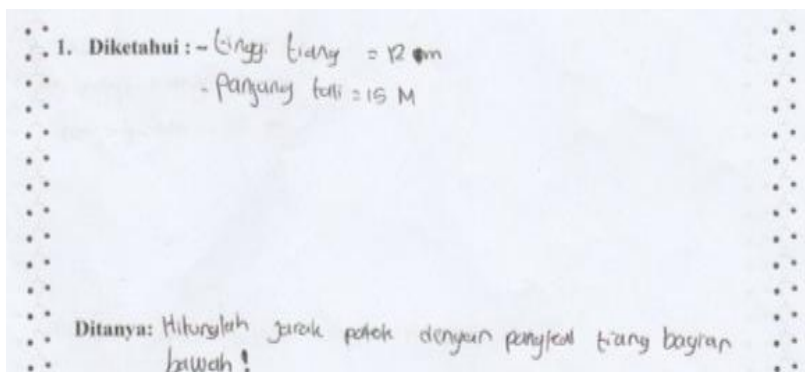 1. Diketahui : - tinggi tiang = 12 m
- Panjang tali = 15 M
Ditanya: Hitunglah jarak patok dengan pangkal tiang bagian
bawah !